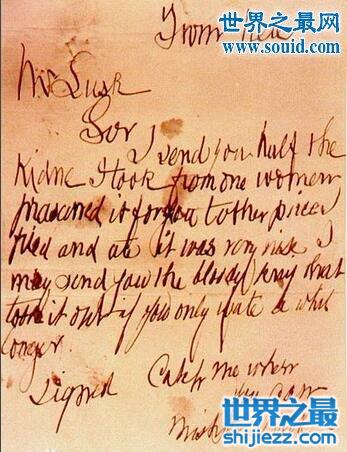 世界之最
www.souid.com
From hell
Mr Lusk
Sor
I send you half the
Kidne I took from one women
prasarved it for you tother piece I
fried and ate it was very nise I
may send you the bloody knif that
took it out if you only wate a whil
longer.
signed
Catch me when
you can
Mishter Lusk
世界之最
shijiezz.com